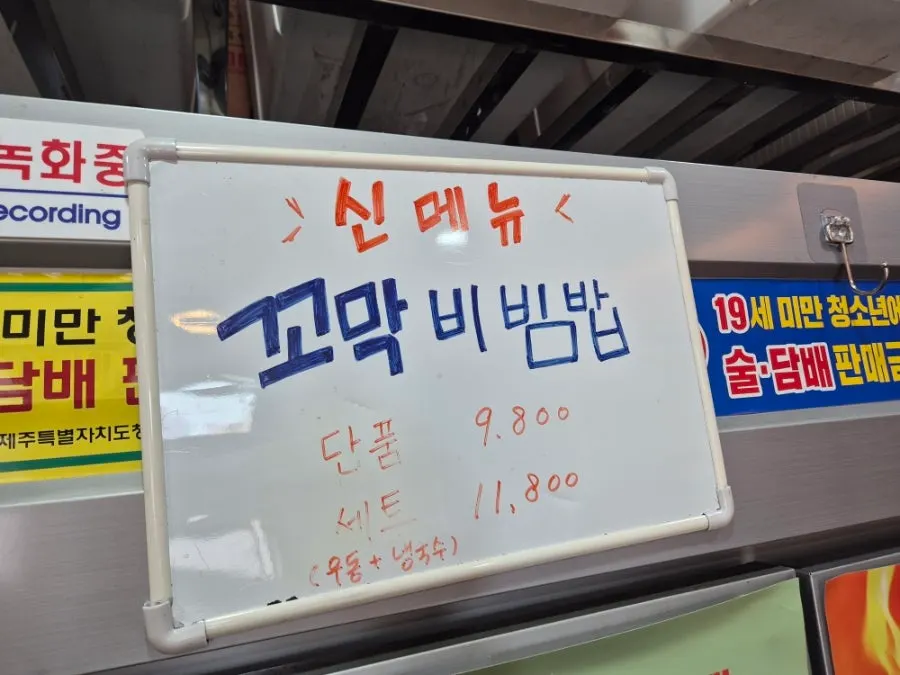 녹화중
ecording
미만 청
담배 판
제주특별자치도청
신메뉴
꼬막 비빔밥
단품 9.800
세트 11,800
(우동 + 냉국수)
19세 미만 청소년에
술·담배 판매금